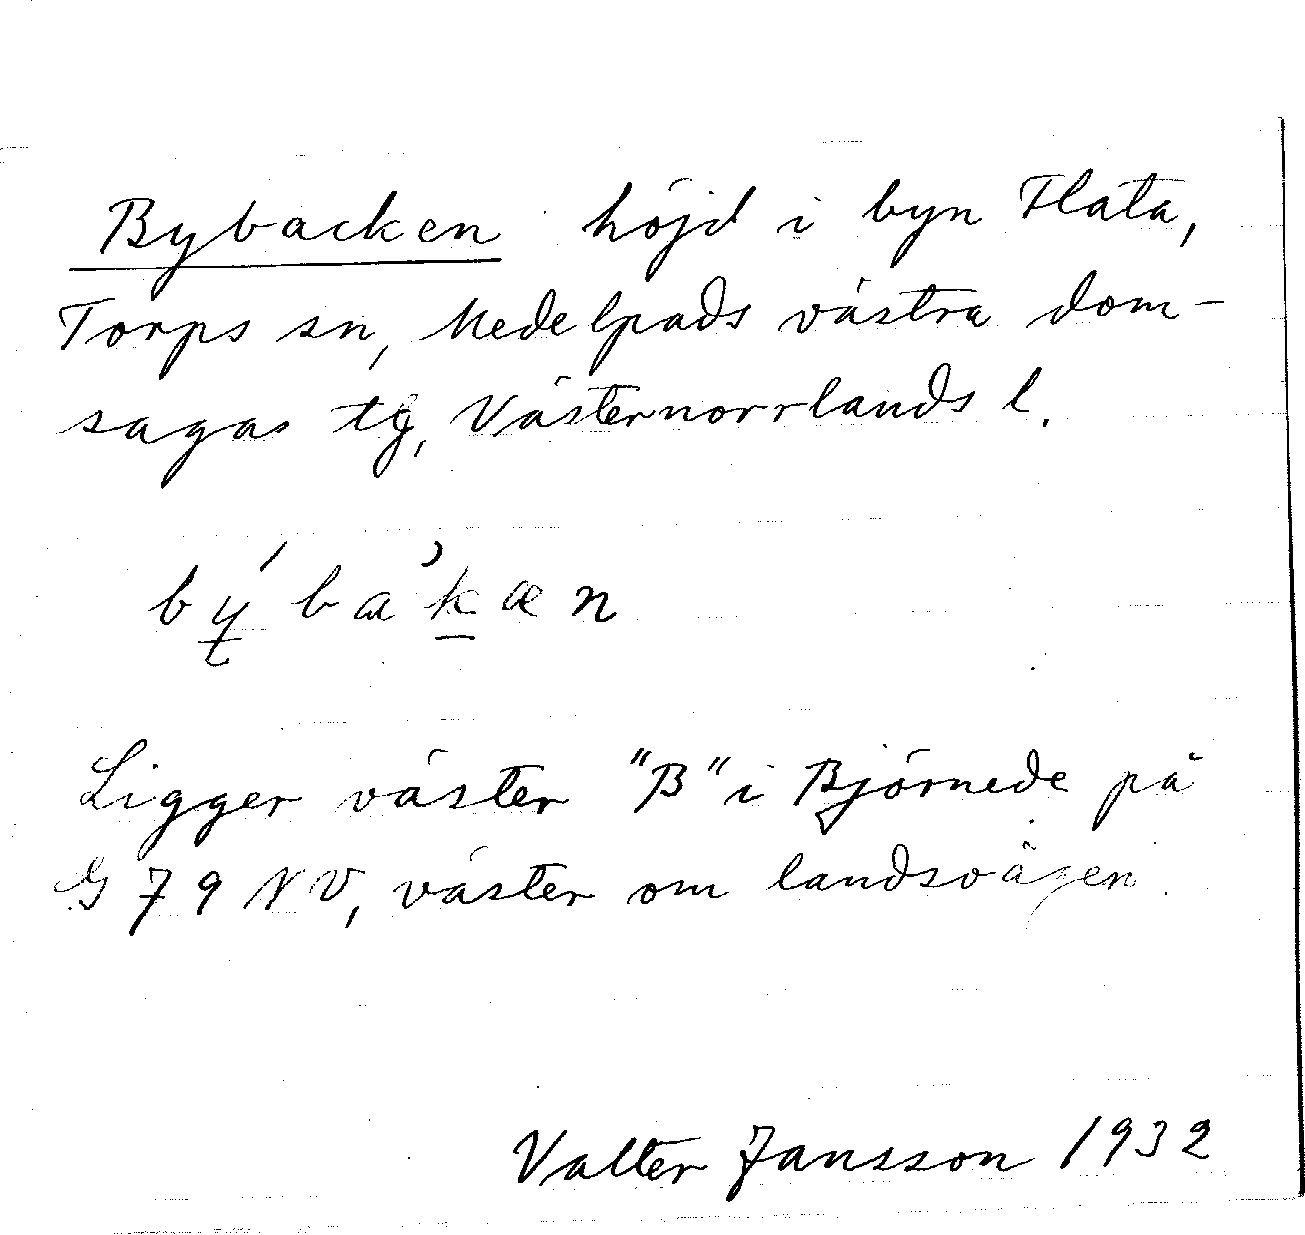 Bybacken höjd i byn Flata,
Torps sn, Medelpads västra dom-
sagas tg, Västernorrlands l.
bý̱ba'ḵæn
Ligger väster "B" i Björnede på
G 79 NV, väster om landsvägen.
Valter Jansson 1932